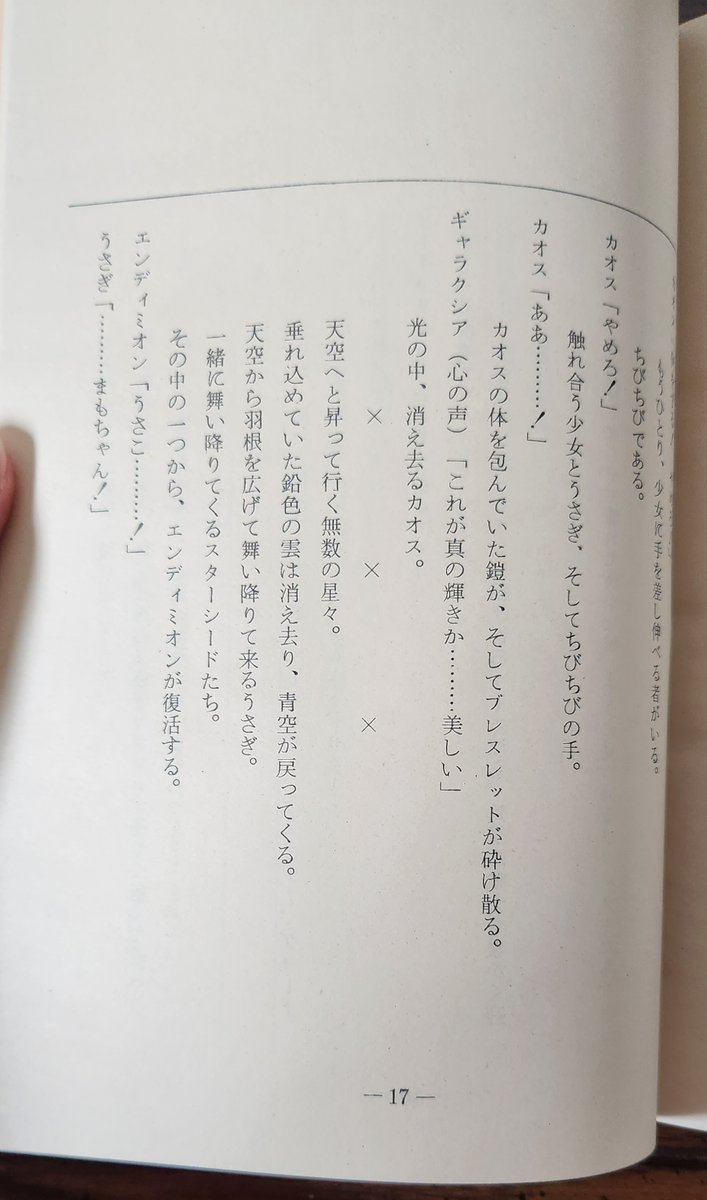 もうひとり、少女に手を差し伸べる者がいる。
ちびちびである。
カオス「やめろ!」
触れ合う少女とうさぎ、そしてちびちびの手。
カオス「ああ………!」
カオスの体を包んでいた鎧が、そしてブレスレットが砕け散る。
ギャラクシア(心の声)「これが真の輝きか………美しい」
光の中、消え去るカオス。
× × ×
天空へと昇って行く無数の星々。
垂れ込めていた鉛色の雲は消え去り、青空が戻ってくる。
天空から羽根を広げて舞い降りて来るうさぎ。
一緒に舞い降りてくるスターシードたち。
その中の一つから、エンディミオンが復活する。
エンディミオン「うさこ………!」
うさぎ「………まもちゃん!」
— 17 —